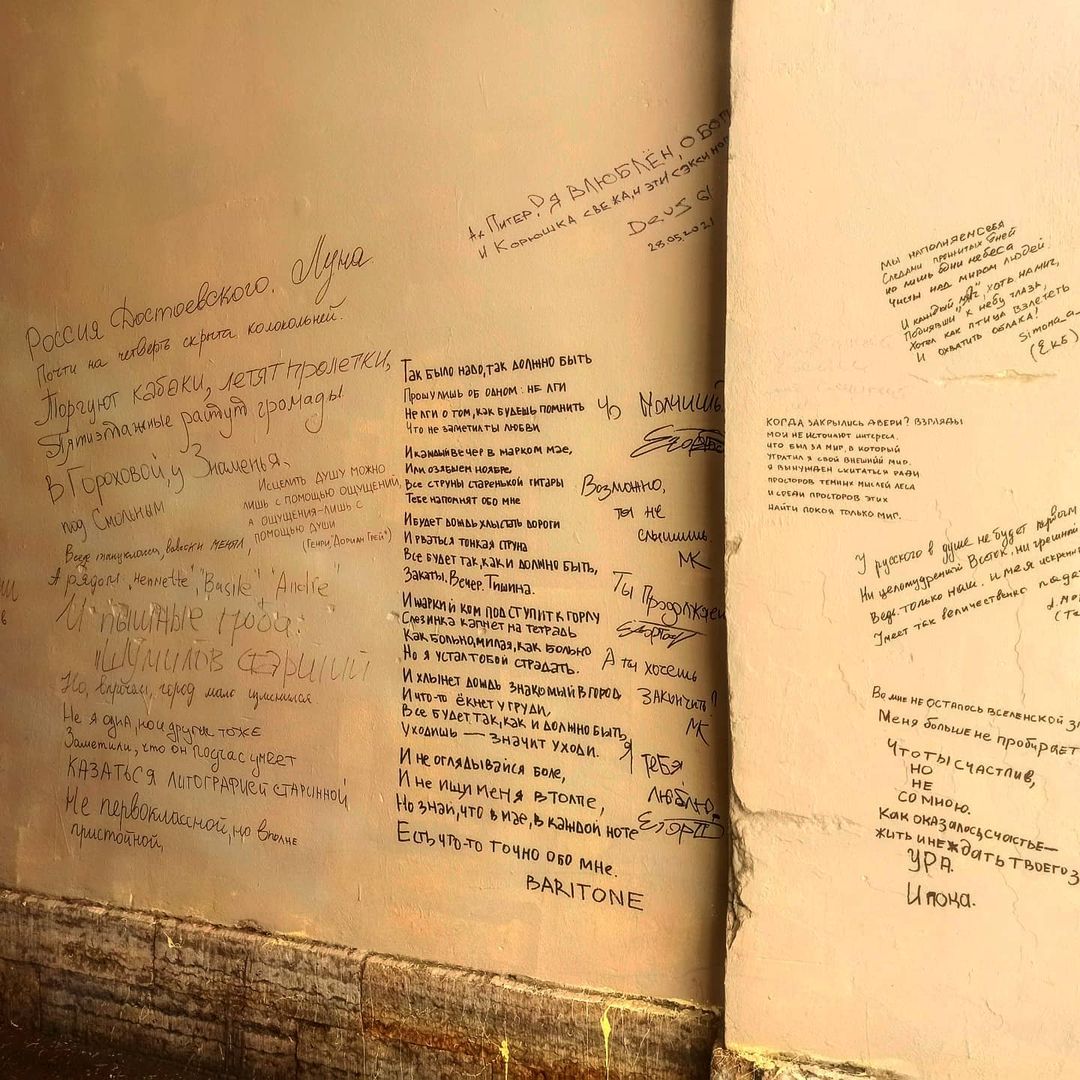 Россия Достоевского. Луна
Почти на четверть скрыта колокольней.
Торгуют кабаки, летят пролетки,
Пятиэтажные растут громады
В Гороховой, у Знаменья,
под Смольным
Везде танцклассы, вывески менял,
А рядом: "Henriette", "Basile", "André"
И пышные гроба:
"Шумилов старший"
Но, впрочем, город мало изменился
Не я одна, но и другие тоже
Заметили, что он подчас умеет
КАЗАТЬСЯ ЛИТОГРАФИЕЙ СТАРИННОЙ
Не первоклассной, но вполне
пристойной,
Исцелить душу можно
лишь с помощью ощущений,
а ощущения-лишь с
помощью души
(Генри, "Дориан Грей")
Ах Питер! Я ВЛЮБЛЁН, О
И КОРЮШКА СВЕЖА, И ЭТИ
DEUS
28.05.2021
Так было надо, так должно быть
Прошу лишь об одном: не лги
Не лги о том, как будешь помнить
Что не заметил ты любви
И каждый вечер в жарком мае,
Или озябшем ноябре,
Все струны старенькой гитары
Тебе напомнят обо мне
И будет дождь хлыстать дороги
И рваться тонкая струна
Все будет так, как и должно быть,
Закаты. Вечер. Тишина.
И жаркий ком подступит к горлу
Слезинка капнет на тетрадь
Как больно, милая, как больно
Но я устал тобой страдать.
И хлынет дождь знакомый в город
И что-то ёкнет у груди,
Все будет так, как и должно быть,
Уходишь — значит уходи.
И не оглядывайся боле,
И не ищи меня в толпе,
Но знай, что в мае, в каждой ноте
Есть что-то точно обо мне.
BARITONE
Чо помнишь?
Возможно,
ты не
слышишь
МК
Ты продолжаеш
А ты хочешь
закончить?
МК
Я тебя
люблю.
Мы наполняем себя
Следами прожитых дней
Но лишь одни небеса
Чисты над миром людей.
И каждый "миг", хоть на миг,
Поднявши к небу глаза,
Хотел как птица взлететь
И охватить облака!
Simona_a_
(Екб)
КОГДА ЗАКРЫЛИСЬ ДВЕРИ? ВЗГЛЯДЫ
МОИ НЕ ИСТОЧАЮТ ИНТЕРЕСА.
ЧТО БЫЛ ЗА МИГ, В КОТОРЫЙ
УТРАТИЛ Я СВОЙ ВНЕШНИЙ МИР.
Я ВЫНУЖДЕН СКИТАТЬСЯ РАДИ
ПРОСТОРОВ ТЕМНЫХ МЫСЛЕЙ ЛЕСА
И СРЕДИ ПРОСТОРОВ ЭТИХ
НАЙТИ ПОКОЯ ТОЛЬКО МИГ.
У русского в душе не будет первым
Ни целомудренный Восток, ни грешный
Ведь только наш. имея искренн
Умеет так величественно пада
Во мне не осталось вселенской
Меня больше не пробирает
Что ты счастлив,
НО
НЕ
СО МНОЮ.
Как оказалось, счастье—
жить и не ждать твоего
УРА.
И пока.